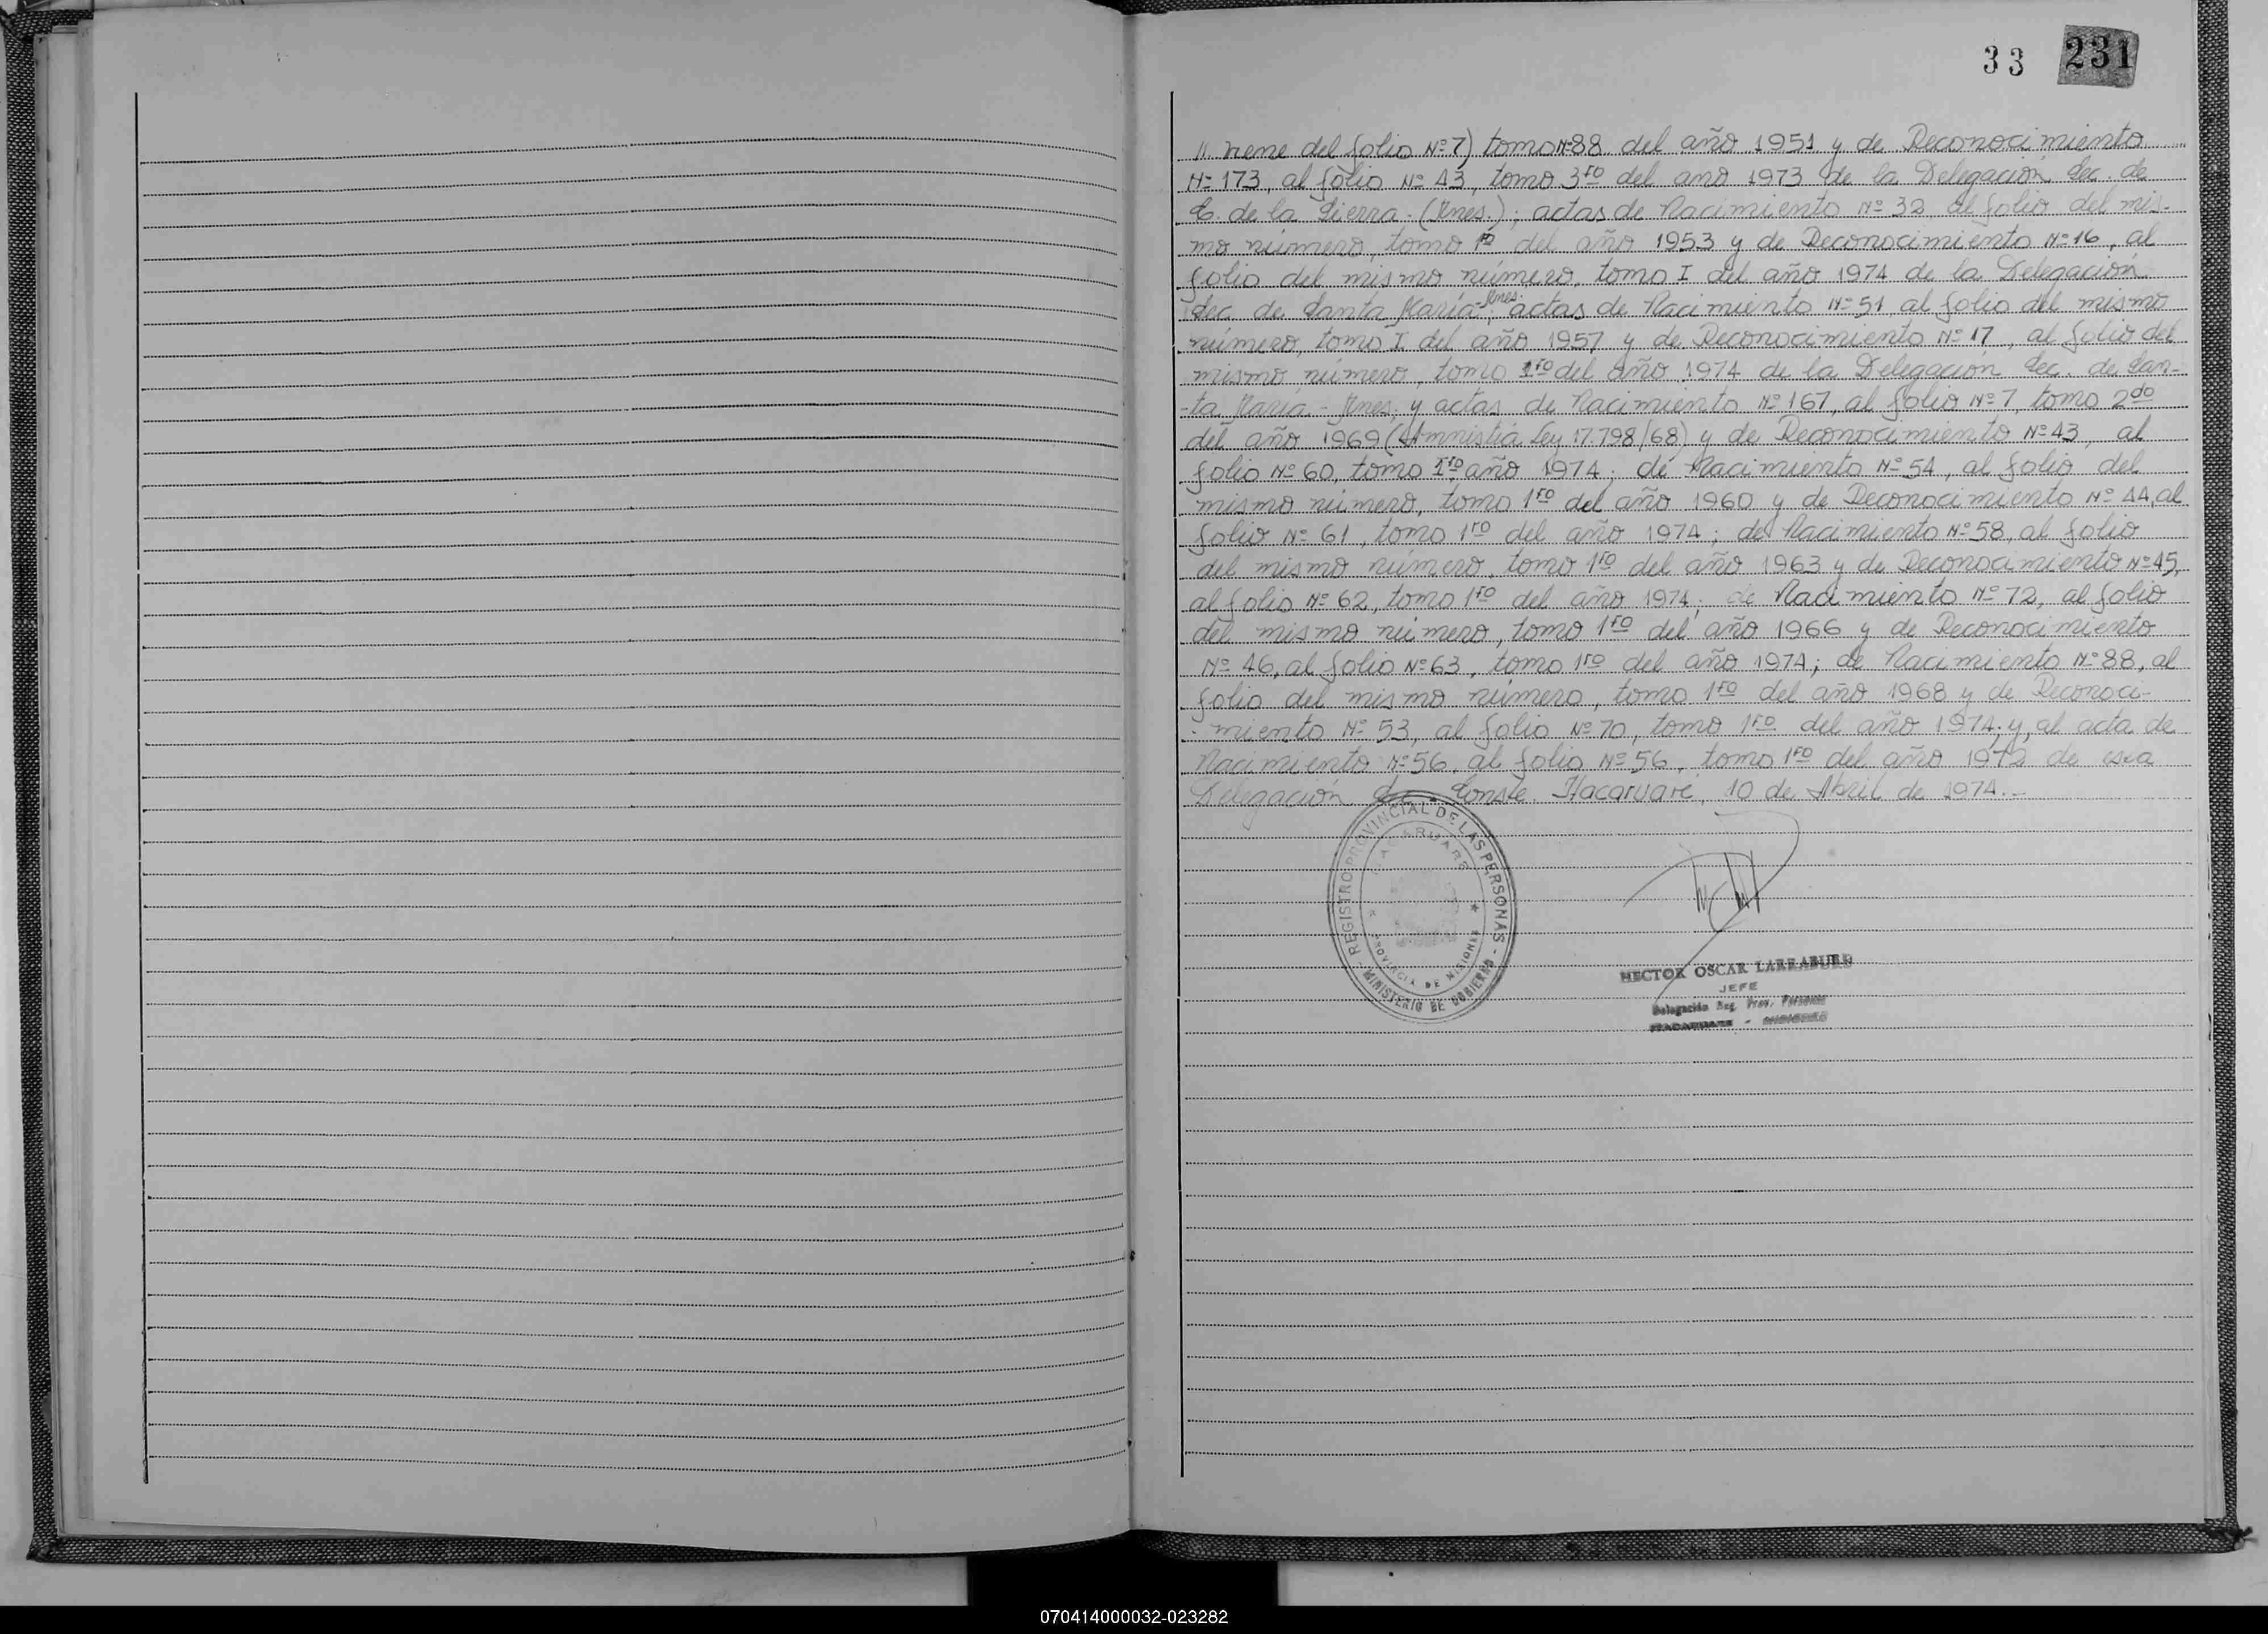 33 231
// viene del folio Nº 7) tomo Nº 88 del año 1951 y de Reconocimiento
Nº 173, al folio Nº 43, tomo 3ro del año 1973 de la Delegación Sec. de
C. de la Sierra. (Mnes.); actas de Nacimiento Nº 32 al folio del mis-
mo número, tomo 1º del año 1953 y de Reconocimiento Nº 16, al
folio del mismo número, tomo I del año 1974 de la Delegación
Sec. de Santa María-Mnes.; actas de Nacimiento Nº 51 al folio del mismo
número, tomo I del año 1957 y de Reconocimiento Nº 17, al folio del
mismo número, tomo 1ro del año 1974 de la Delegación Sec. de San-
-ta María - Mnes; y actas de Nacimiento Nº 167, al folio Nº 7, tomo 2do
del año 1969 (Amnistía Ley 17.798/68) y de Reconocimiento Nº 43, al
folio Nº 60, tomo 1ro año 1974; de Nacimiento Nº 54, al folio del
mismo número, tomo 1ro del año 1960 y de Reconocimiento Nº 44, al
folio Nº 61, tomo 1ro del año 1974; de Nacimiento Nº 58, al folio
del mismo número, tomo 1ro del año 1963 y de Reconocimiento Nº 45,
al folio Nº 62, tomo 1ro del año 1974; de Nacimiento Nº 72, al folio
del mismo número, tomo 1ro del año 1966 y de Reconocimiento
Nº 46, al folio Nº 63, tomo 1ro del año 1974; de Nacimiento Nº 88, al
folio del mismo número, tomo 1ro del año 1968 y de Reconoci-
- miento Nº 53, al folio Nº 70, tomo 1ro del año 1974; y, al acta de
Nacimiento Nº 56, al folio Nº 56, tomo 1ro del año 1972 de esta
Delegación Conste. Itacaruaré, 10 de Abril de 1974.-
- REGISTRO PROVINCIAL DE LAS PERSONAS -
ITACARUARE
PROVINCIA DE MISIONES
MINISTERIO DE GOBIERNO
HECTOR OSCAR LARRABURU
JEFE
Delegación Reg. Prov. Personas
ITACARUARE - MISIONES
070414000032-023282